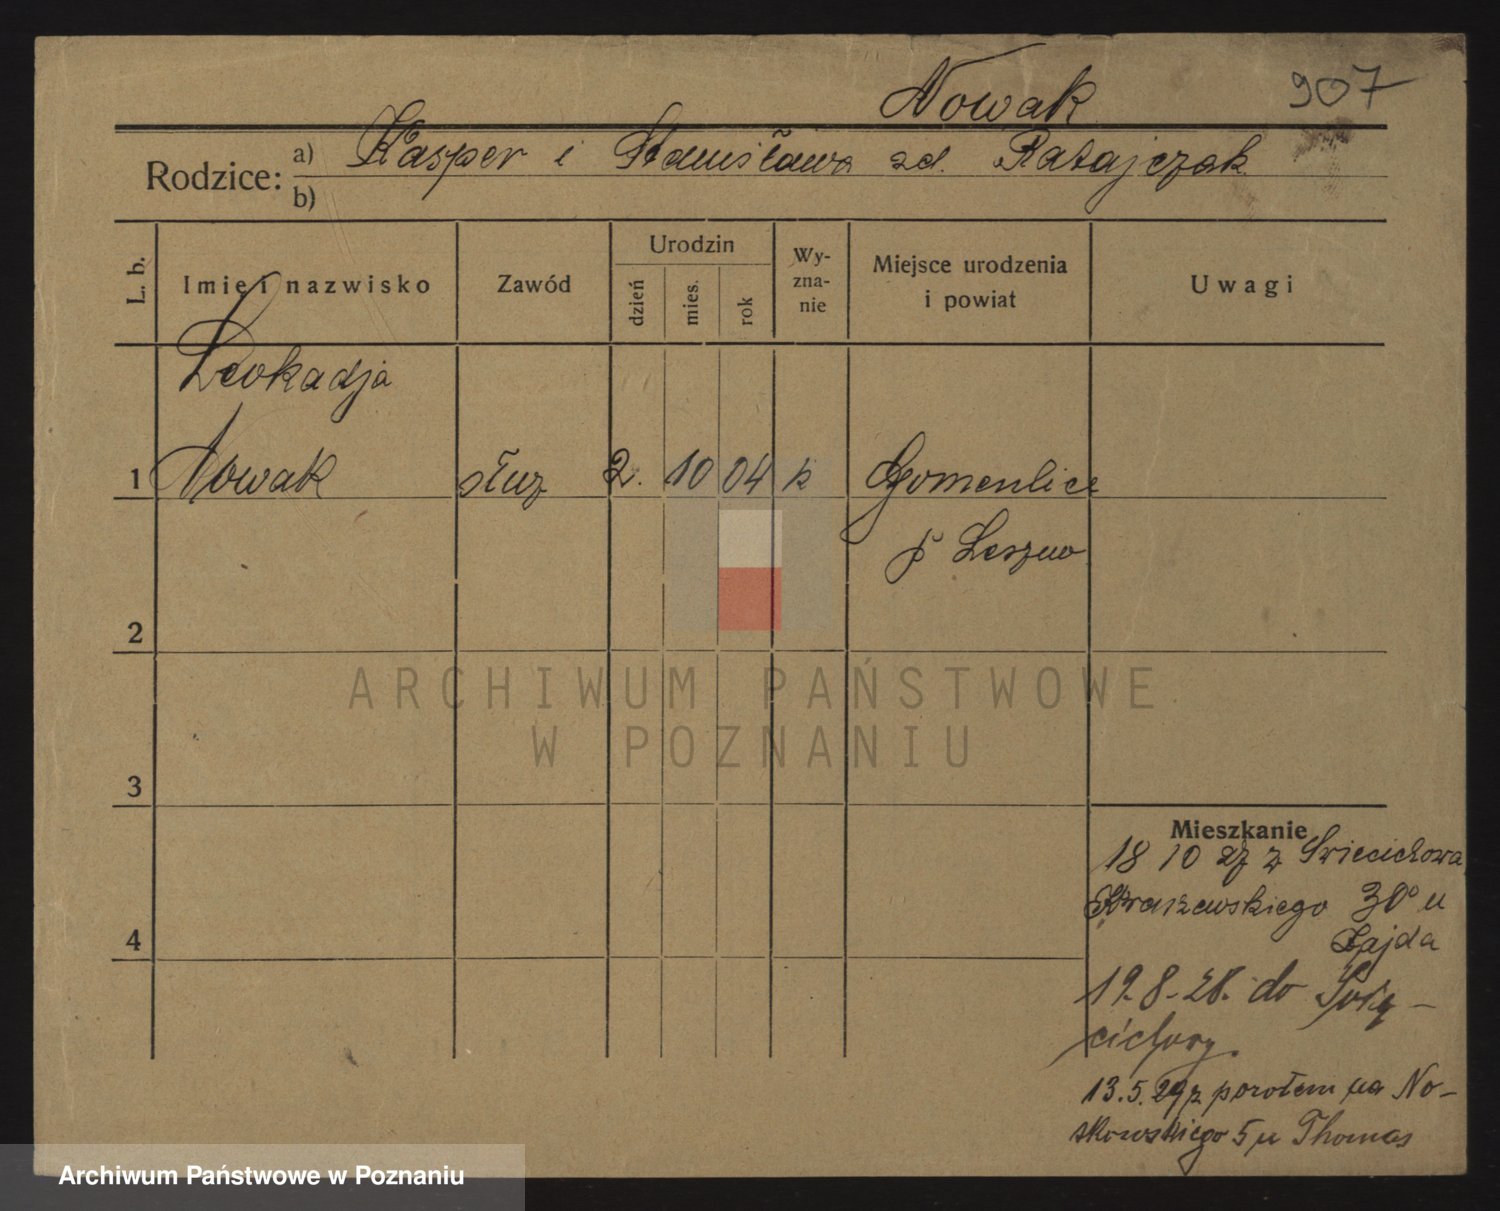 Nowak 907
Rodzice: a) Kasper i Stanisława zd. Ratajczak
b)
L. b.
Imię i nazwisko
Zawód
Urodzin
dzień
mies.
rok
Wy-
zna-
nie
Miejsce urodzenia
i powiat
Uwagi
Leokadja
1 Nowak służ 2. 10 04 k
p Leszno
2
ARCHIWUM PAŃSTWOWE
W POZNANIU
3
Mieszkanie
18 10 z Swieciechowa
Kraszewskiego 30 u
Zajda
19.8.28. do Świę-
ciechowy.
13.5.29 z powrotem na No-
skowskiego 5 u Thomas
4
Archiwum Państwowe w Poznaniu